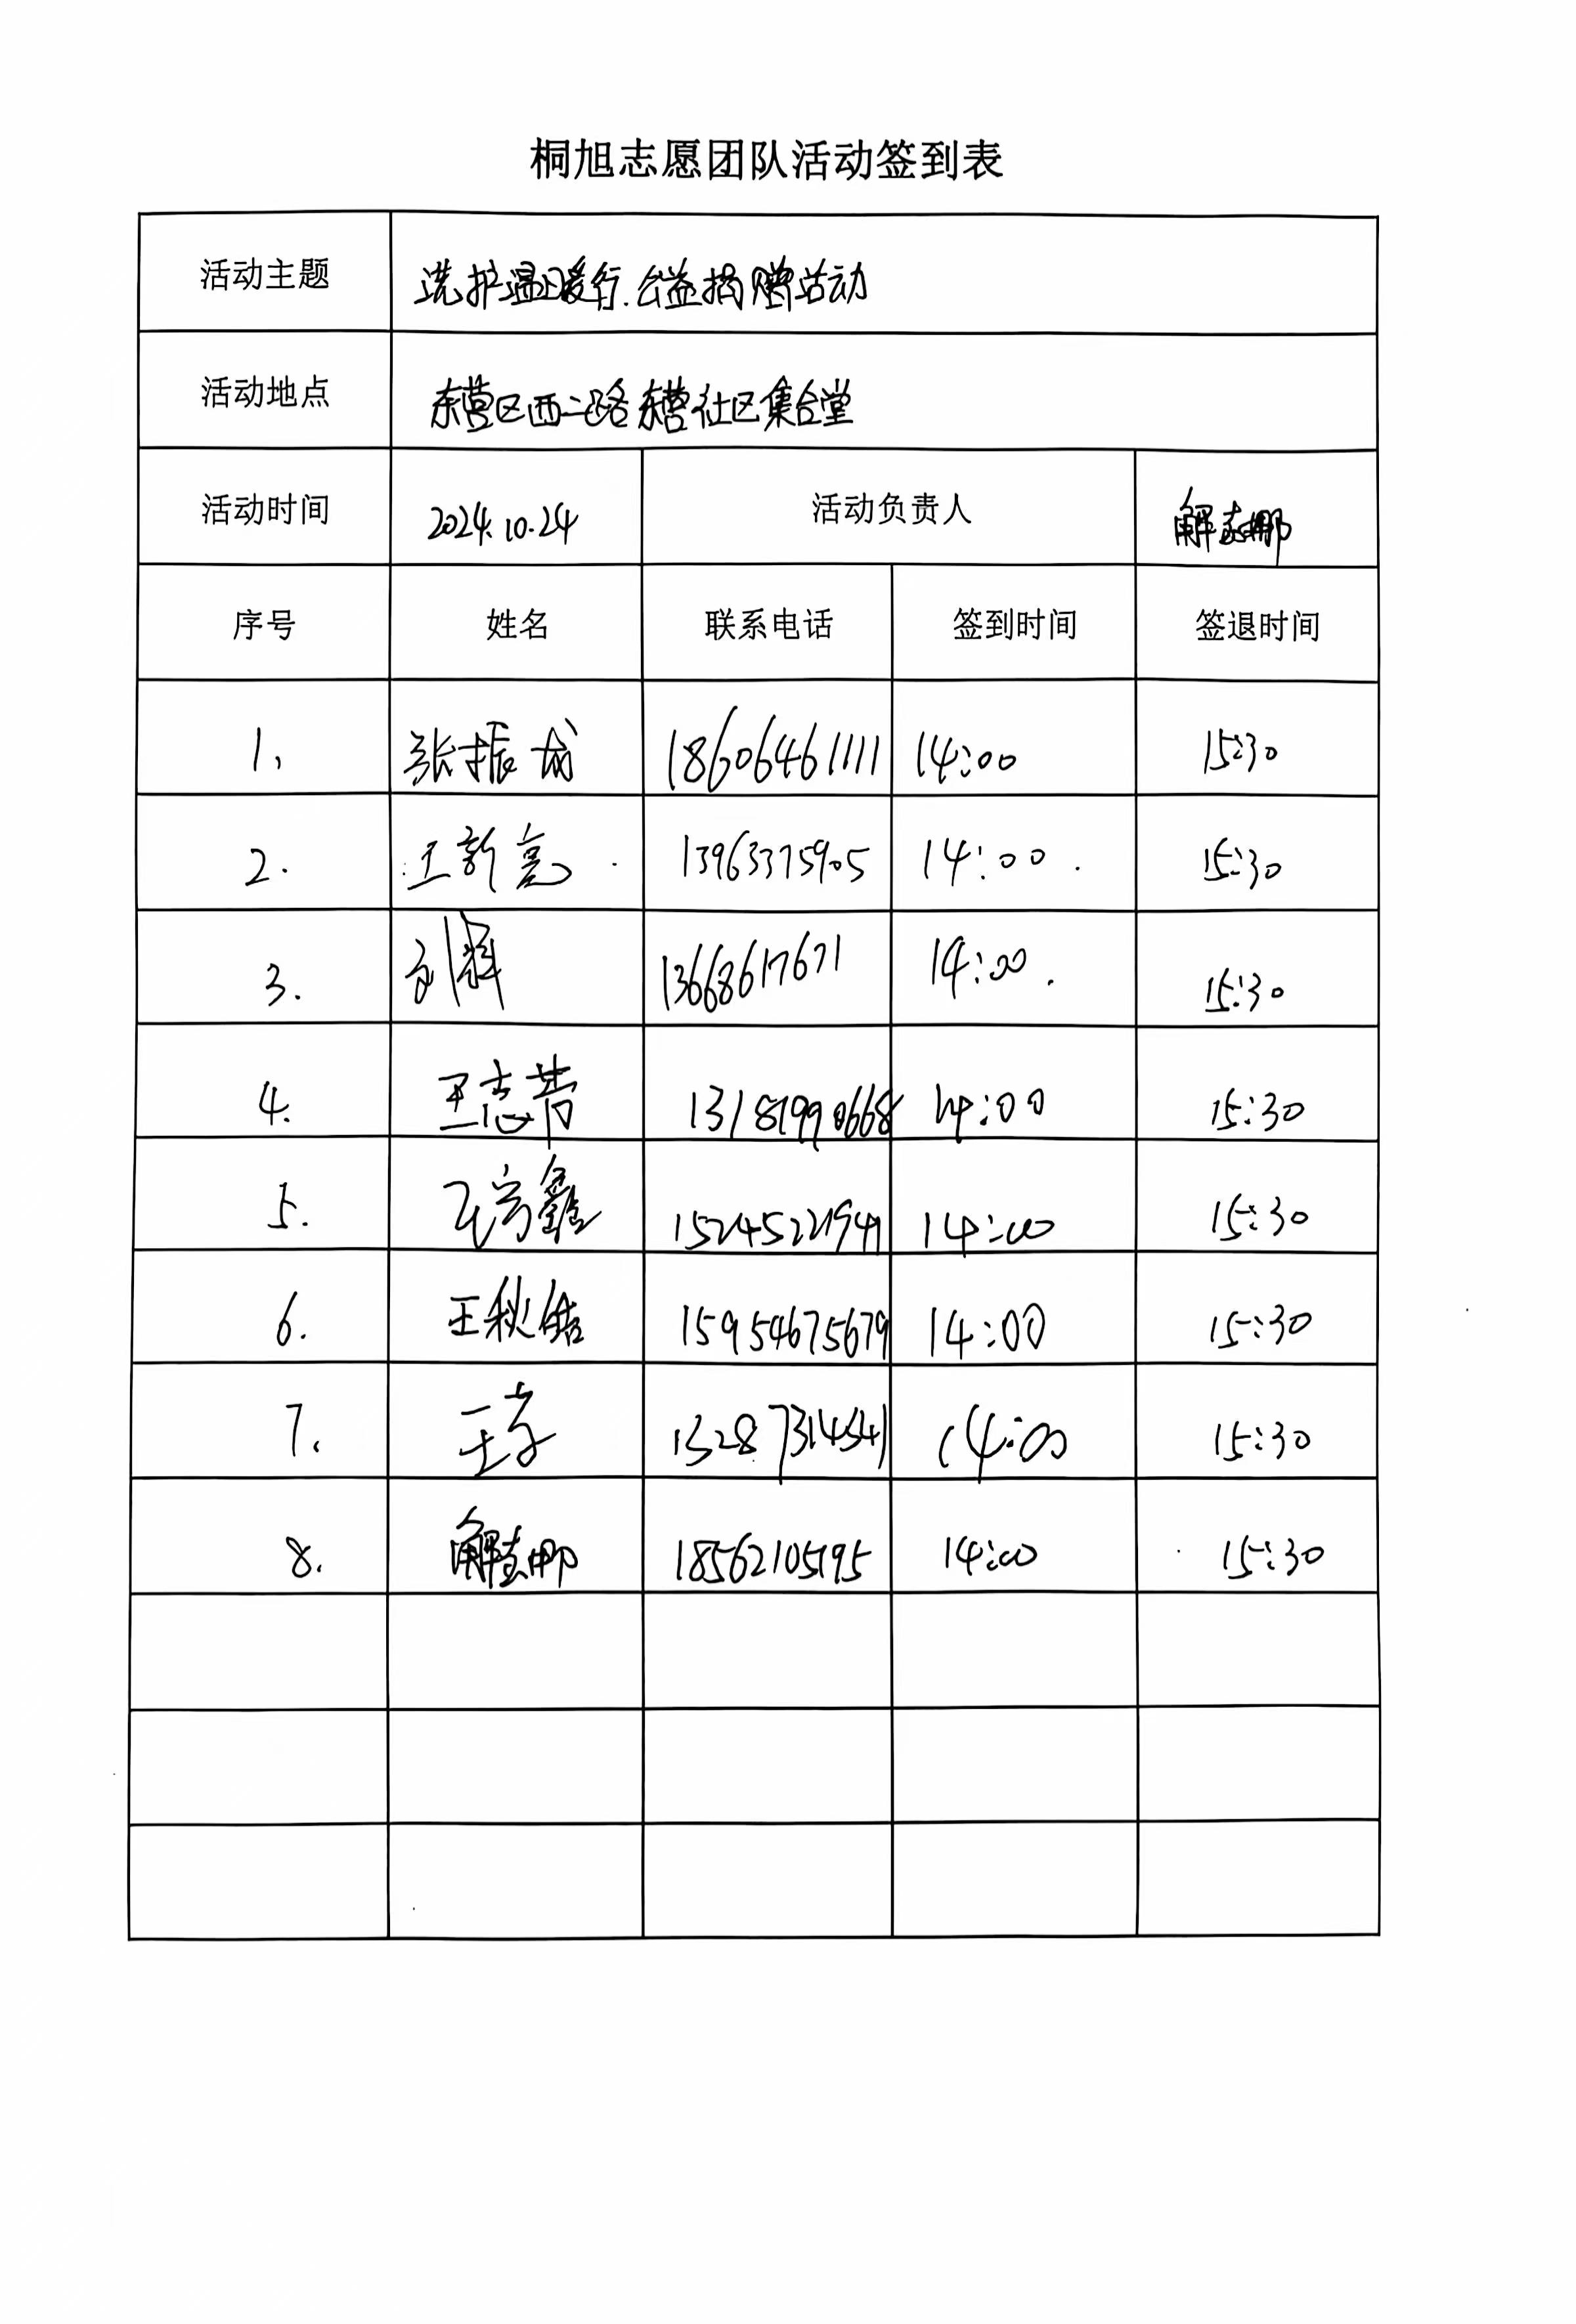 桐旭志愿团队活动签到表
活动主题 洗护温暖行.公益捐赠活动
活动地点 东营区西二路东营社区集合堂
活动时间 2024.10.24 活动负责人 解志娜
序号 姓名 联系电话 签到时间 签退时间
1. 张振 18606461111 14:00 15:30
2. 王新亮 13963375905 14:00 15:30
3. 刘 13668617671 14:00 15:30
4. 王志芳 13181990668 14:00 15:30
5. 鑫 15245221941 14:00 15:30
6. 王秋皓 15954675679 14:00 15:30
7. 王 15287314541 14:00 15:30
8. 解志娜 18562105195 14:00 15:30